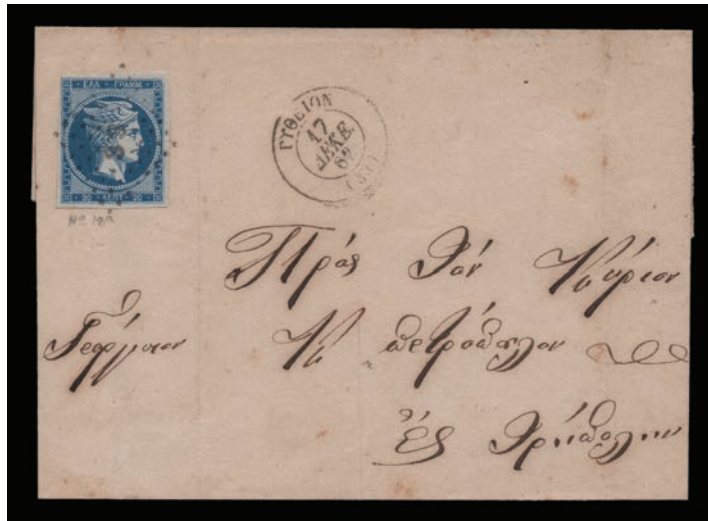 ΕΛΛ. ΓΡΑΜΜ.
20 ΛΕΠΤ. 20
ΓΥΘΕΙΟΝ
17
ΔΕΚΕ.
Πρὸς Τὸν Κύριον
Γεώργιον Κ πετρόπουλον
Εἰς Τρίπολιν